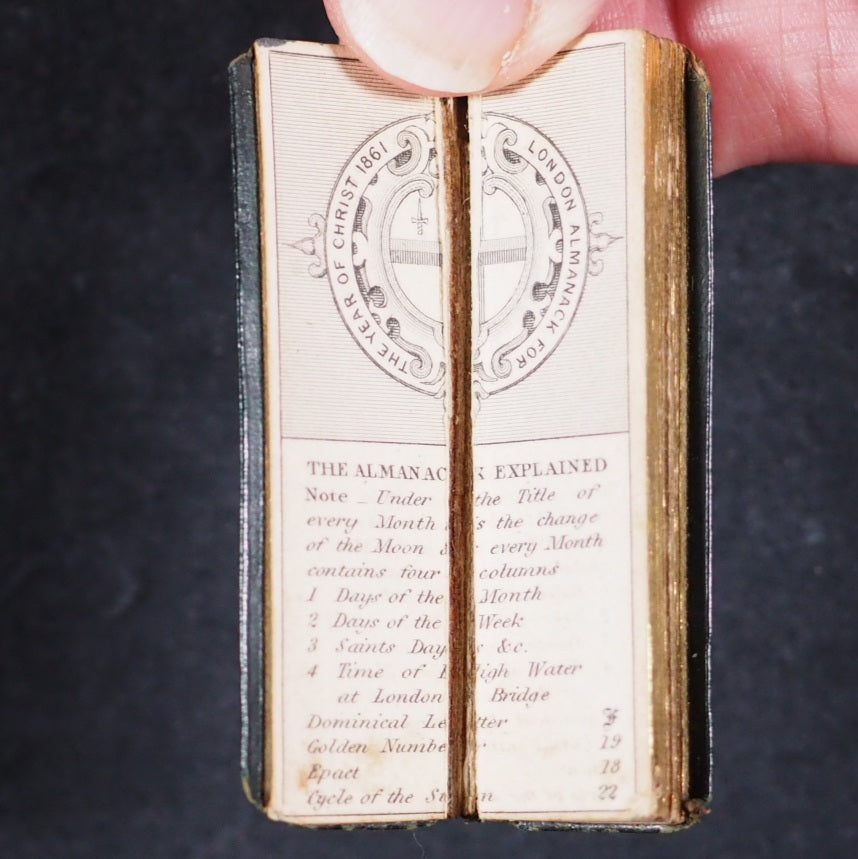 LONDON ALMANACK FOR
THE YEAR OF CHRIST 1861
THE ALMANACK EXPLAINED
Note _ Under the Title of
every Month is the change
of the Moon & every Month
contains four columns
1 Days of the Month
2 Days of the Week
3 Saints Days &c.
4 Time of High Water
at London Bridge
Dominical Letter F
Golden Number 19
Epact 18
Cycle of the Sun 22